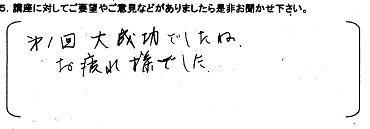 5. 講座に対してご要望やご意見などがありましたら是非お聞かせ下さい。
才1回 大成功でしたね.
お疲れ様でした.